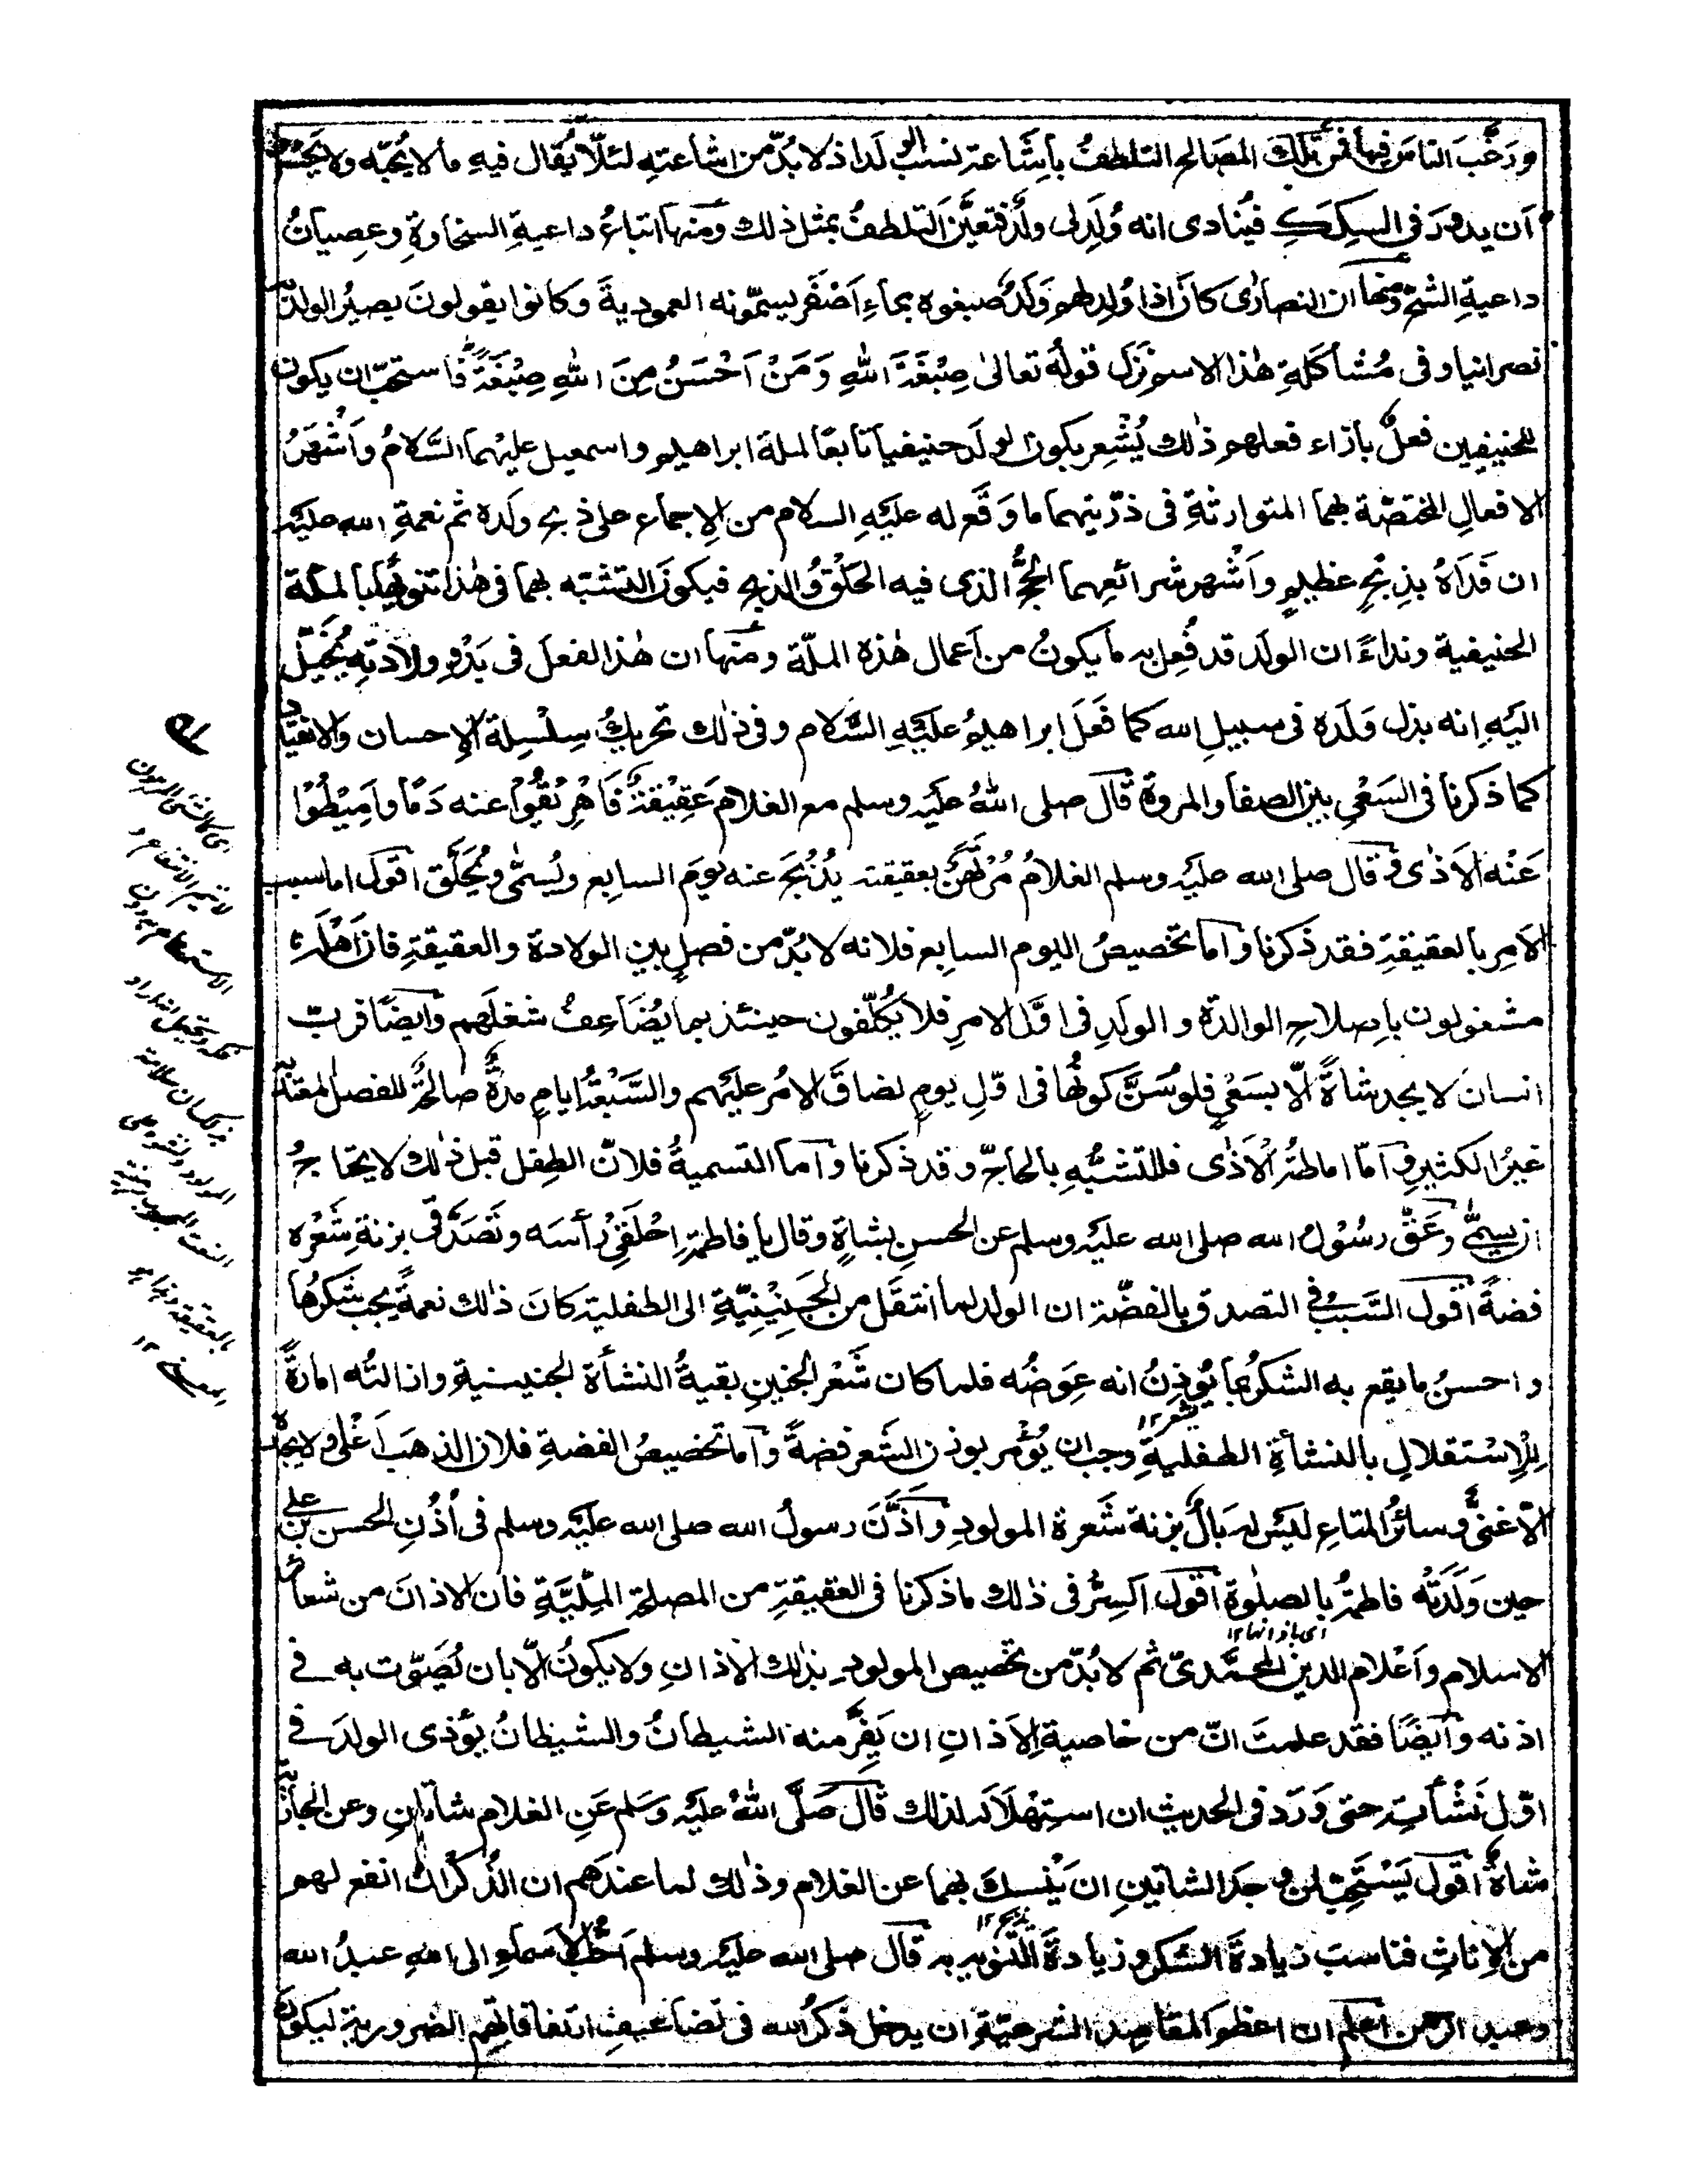 ورغّب الناس فيها فمن تلك المصالح التلطفُ بأشاعة نسب الولَد اذ لا بُدّ من اشاعتهِ لئلّا يُقال فيهِ ما لا يُحبّه ولا يَحْسُن
اَن يدورَ فى السِكَكِ فيُنادى انه وُلِدَ لى ولدٌ فتعيّنَ التلطفُ بمثل ذلك ومنها اتباعُ داعيةِ السخاوةِ وعصيانُ
داعيةِ الشحّ ومنها ان النصارٰى كان اذا وُلد لهم وَلَدٌ صبغوه بماءٍ اَصْفَر يسمّونه العموديةَ وكانوا يقولونَ يصيرُ الولدُ به
نصرانيا وفى مُشاكلةِ هٰذا الاسم نزل قولُهُ تعالىٰ صِبْغَةَ اللهِ وَمَنْ اَحْسَنُ مِنَ اللهِ صِبْغَةً فاستحبّ ان يكون
للحنيفيين فعلٌ بأزاء فعلهم ذٰلك يُشْعِر بكون الولد حنيفيا تابعًا لملة ابراهيم واسمعيل عليهما السَّلامُ وأشْهَرُ
الافعالِ المختصّة بهما المتوارثةِ فى ذرّيتهما ما وَقَع له عليْهِ السلام من الاِجماع على ذبح ولده ثم نعمةِ الله عليْه
ان فَدَاهُ بذِبْحٍ عظيمٍ وأشْهر شرائعِهما الحجُّ الذى فيه الحَلْقُ والذبح فيكونُ التشبّه بهما فى هٰذا تنويهًا بالملّة
الحنيفية ونداءً ان الولَد قد فُعِل به ما يكونُ من أعمال هٰذه الملّة ومنها ان هٰذا الفعلَ فى بَدْوِ ولادتِهِ يُخَيِّل
اليْهِ انه بذل وَلَده فى سبيلِ الله كما فَعَلَ ابراهيمُ عليْهِ السَّلام وفى ذٰلك تحريكُ سِلْسِلةِ الاِحسان والانقياد
كما ذكرنا فى السَعْىِ بين الصفا والمروة قال صلى اللهُ عليْه وسلم مع الغلام عَقِيْقَةٌ فَاَهْرِيْقُوْا عنه دَمًا واَمِيْطُوْا
عَنْه الاَذٰى وقال صلى الله عليه وسلم الغلامُ مُرْتَهَنٌ بعقيقته يُذْبَحَ عنه يومَ السابع ويُسمّٰى ويُحَلَّق اقول اما سبب
الاَمرِ بالعقيقةِ فقد ذكرنا واما تخصيصُ اليوم السابعِ فلانه لا بُدّ من فصلٍ بين الولادة والعقيقةِ فان اَهْلَه
مشغولون باِصلاحِ الوالدة والولدِ فى اوّل الامرِ فلا يُكلّفون حينئذ بما يُضَاعِفُ شغلَهم وايضًا فربّ
انسانٍ لا يجد شاةً الّا بسَعْىٍ فلو سُنَّ كونُها فى اوّلِ يومٍ لضاقَ الامُر عليْهم والسَّبْعَةُ ايامٍ مدةٌ صالحةٌ للفصل المعتدّ به
غيرُ الكثيرِ واَمّا اماطةُ الاَذٰى فللتشبُّهِ بالحاجّ وقد ذكرنا واما التسميةُ فلانّ الطِفل قبل ذٰلك لا يحتاجُ
ان يسمّٰى وعَقّ رسُوْلُ الله صلى الله عليْه وسلم عن الحسنِ بشاةٍ وقال يا فاطمةُ احْلقىْ رأسَه وتَصَدَّقى بزنةِ شَعْره
فضةً اقول السَّببُ فى التصدق بالفضّة ان الولد لما انتقل من الجَنِيْنِيَّةِ الى الطفلية كانَ ذٰلك نعمةً يجب شكرُها
واحسنُ ما يقع به الشكرُ ما يُؤذِنُ انه عِوَضُه فلما كان شَعْر الجنينِ بقيةَ النشأة الجنينية وازالتُه امارةً
يشعر ١٢
لِلْاِسْتقلالِ بالنشأةِ الطفليةِ وجب ان يُؤْمر بوزن الشّعر فضةً واما تخصيصُ الفضةِ فلان الذهبَ اَغْلٰى ولا يجده
الّا غنىٌّ وسائرُ المتاعِ ليسَ له بَالٌ بزنة شَعرة المولودِ واَذّنَ رسولُ الله صلى الله عليه وسلم فى اُذُنِ الحسن بن على
حين ولَدَتْه فاطمةُ بالصلٰوة اقول السِرّ فى ذٰلك ما ذكرنا فى العقيقةِ من المصلحةِ المِلّيَّةِ فان الاذانَ من شعائر
الاسلام واَعْلام الدين المحمّدىّ ثم لا بُدّ من تخصيص المولودِ بذٰلك الاذانِ ولا يكونُ الّا بان يُصَوّت به فى
اذنه وايضًا فقد علمتَ انّ من خاصية الاَذانِ ان يَفِرَّ منه الشيطانُ والشيطانُ يؤذى الولدَ فى
اوّل نَشْأته حتى وَرَد فى الحديث ان استِهْلاله لذلك قال صَلَّى اللهُ عليْه وسَلم عَنِ الغلام شاتانِ وعن الجارية
شاةٌ اقول يَسْتَحِبُّ لمن وجد الشاتينِ ان يَنْسك بهما عن الغلام وذٰلك لما عندَهم ان الذُّكرانَ انفع لهم
من الاِناثِ فناسبَ زيادةَ الشكر وزيادةَ التنويه به قال صلى الله عليْه وسلم اَحَبُّ الاَسماءِ الى اللهِ عبدُ الله
وعبد الرحمن اعلم ان اعظم المقاصد الشرعيّة ان يدخل ذكرُ الله فى تضاعيف ارتفاقاتهم الضرورية ليكون